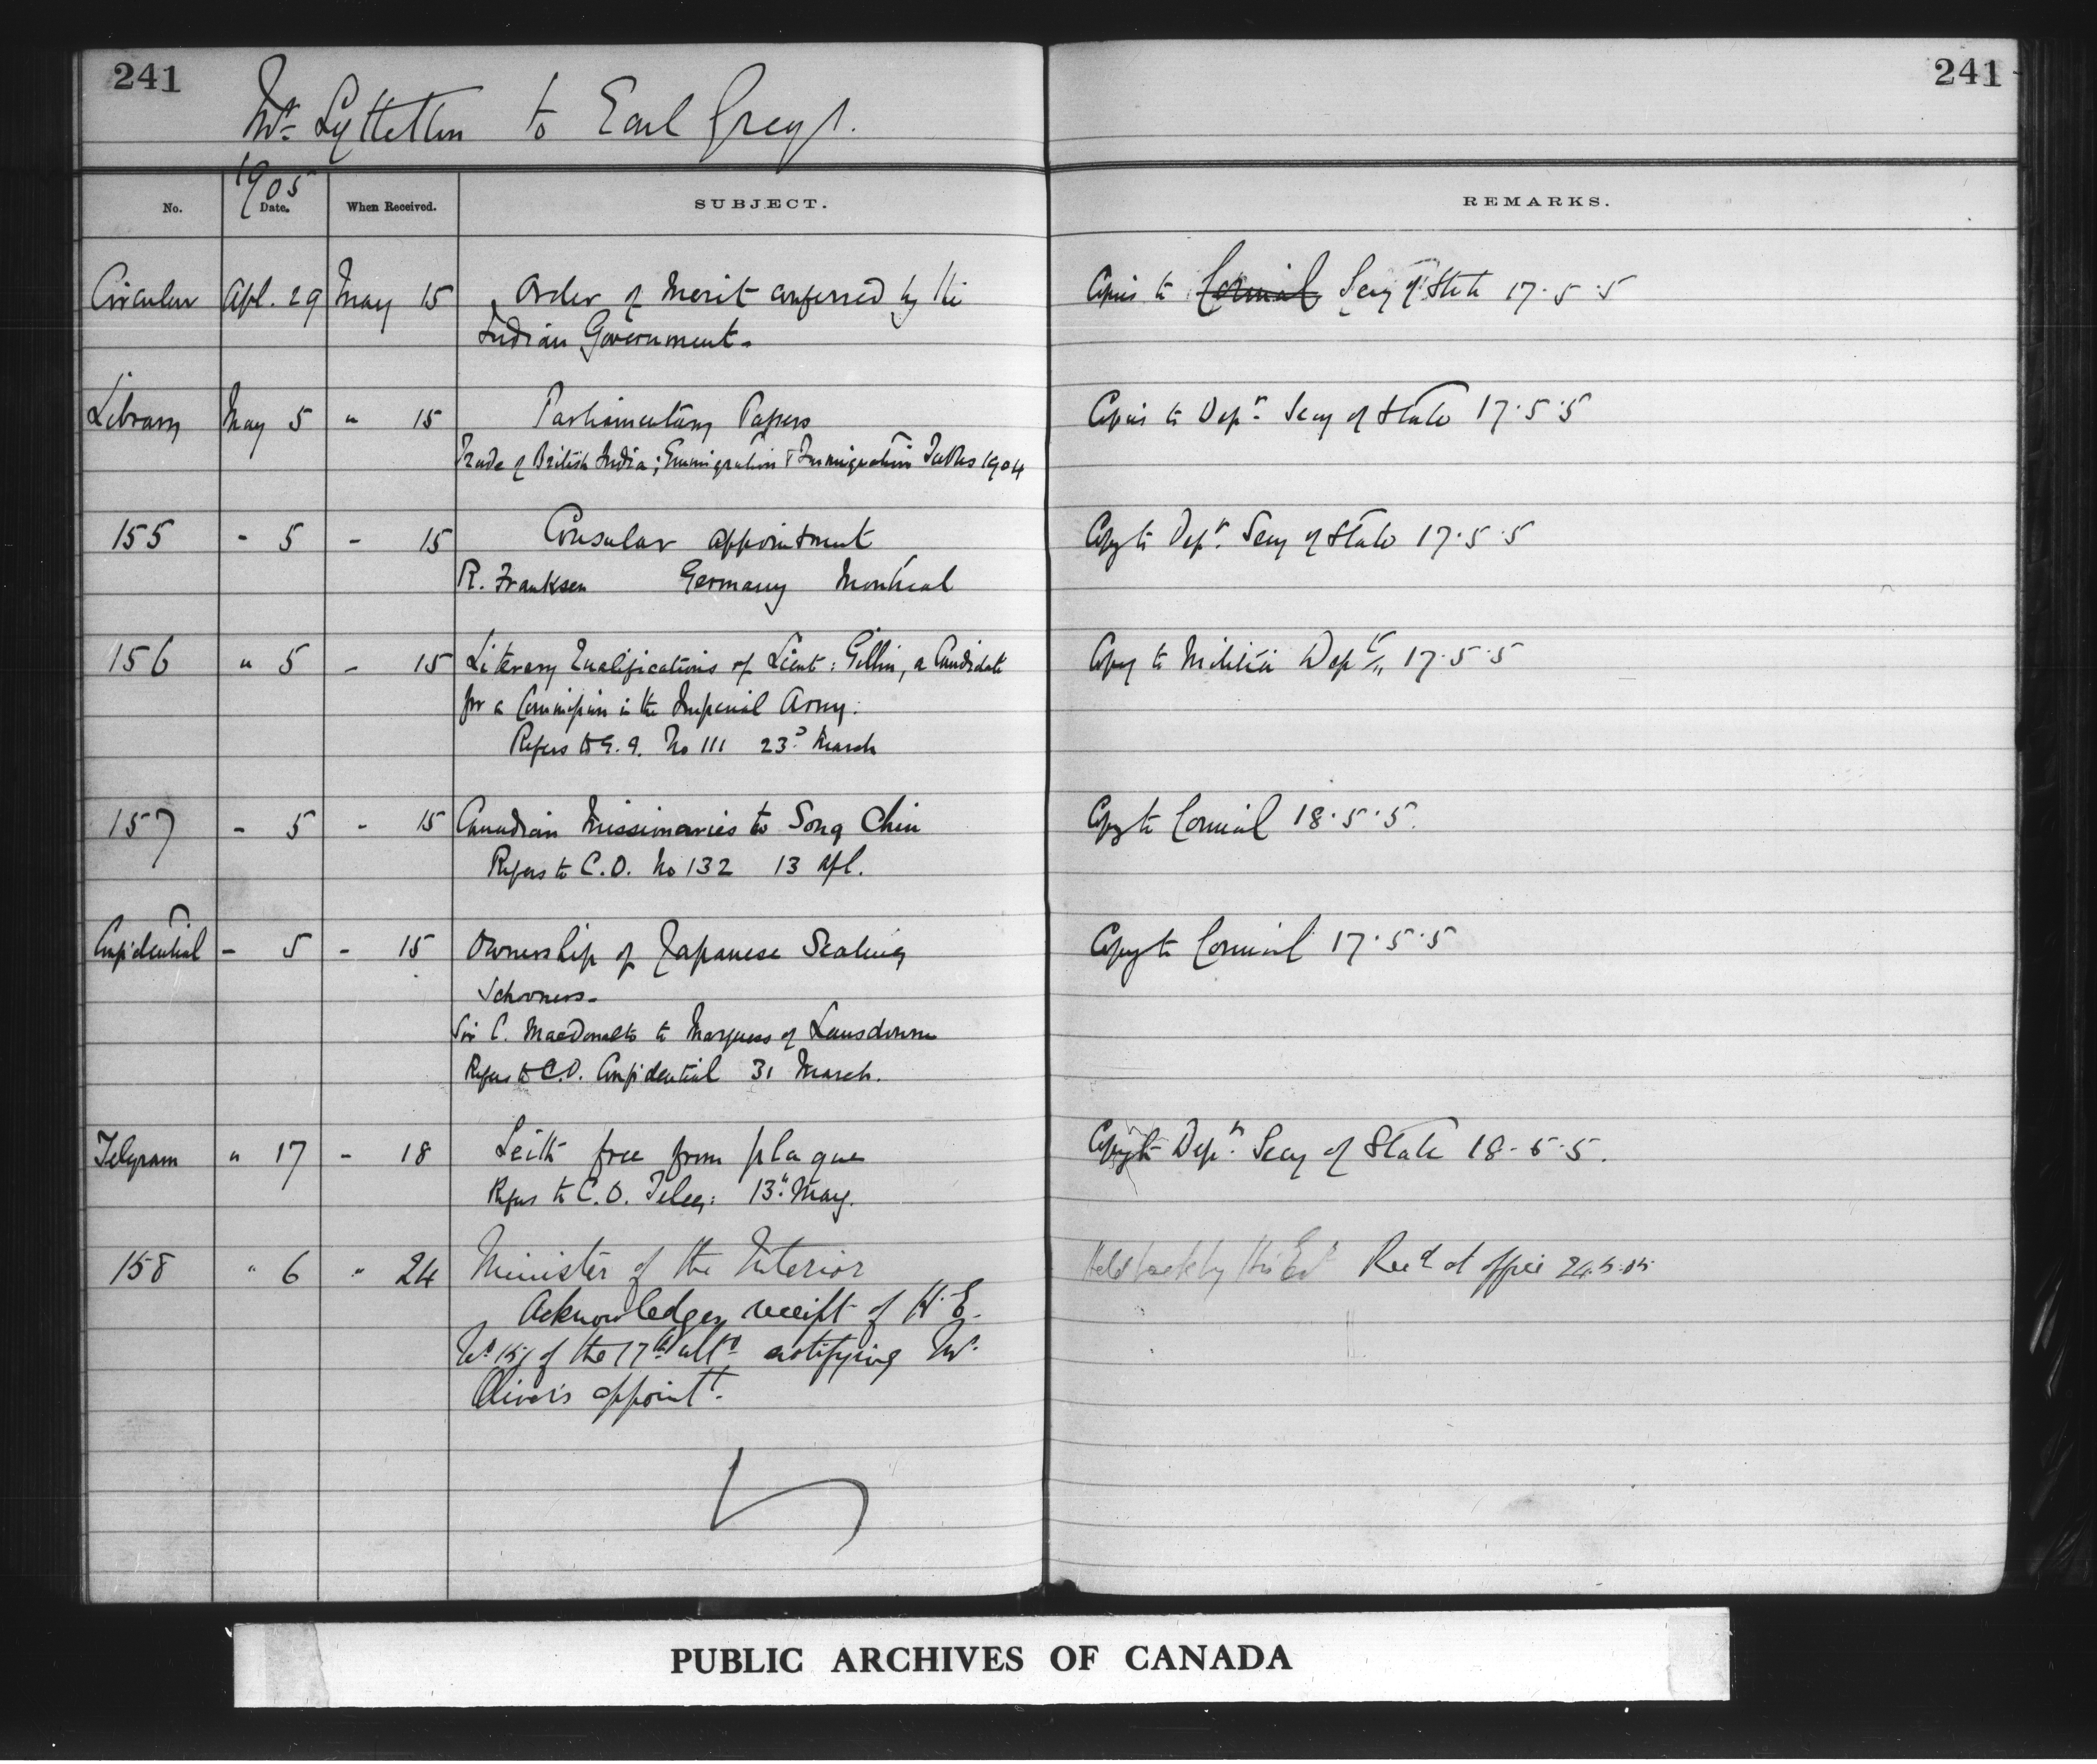 241
241
Mr. Lyttelton to Earl Grey.
1905
No. Date. When Received. SUBJECT. REMARKS.
Circular Apl. 29 May 15 Order of Merit conferred by the Copies to Council Secy of State 17.5.5
Indian Government.
Library May 5 " 15 Parliamentary Papers Copies to Depr. Secy of State 17.5.5
Trade of British India; Emmigration & Immigration Tables 1904
155 " 5 " 15 Consular appointment Copy to Depr. Secy of State 17.5.5
R. Franksen Germany Montreal
156 " 5 " 15 Literary Qualifications of Lieut: Gillin, a Candidate Copy to Militia Dept. 17.5.5
for a Commission in the Imperial Army.
Refers to G.G. No 111 23d March
157 " 5 " 15 Canadian Missionaries to Song Chin Copy to Council 18.5.5.
Refers to C.O. No 132 13 Apl.
Confidential " 5 " 15 Ownership of Japanese Sealing Copy to Council 17.5.5
Schooners.
Sir C. MacDonald to Marquess of Lansdowne
Refers to C.O. Confidential 31 March.
Telegram " 17 " 18 Leith free from plague Copy to Depy. Secy of State 18.5.5.
Refers to C.O. Teleg: 13th May.
158 " 6 " 24 Minister of the Interior Held back by His Ex Recd at office 24.5.05
Acknowledges receipt of H.E.
No of the 17th ulto notifying Mr.
Oliver's appointt.
PUBLIC ARCHIVES OF CANADA